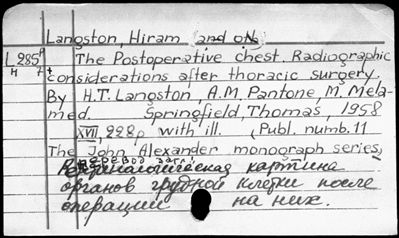 Langston, Hiram and oth.
L285p The Postoperative chest. Radiographic
H 7 considerations after thoracic surgery.
By H.T. Langston, A.M. Pantone, M. Mela-
med. Springfield, Thomas, 1958
XVII, 228p with ill. , Publ. numb. 11
The John Alexander monograph series,
перевод загл.:
Рентгенологическая картина
органов грудной клетки после
операций на них.